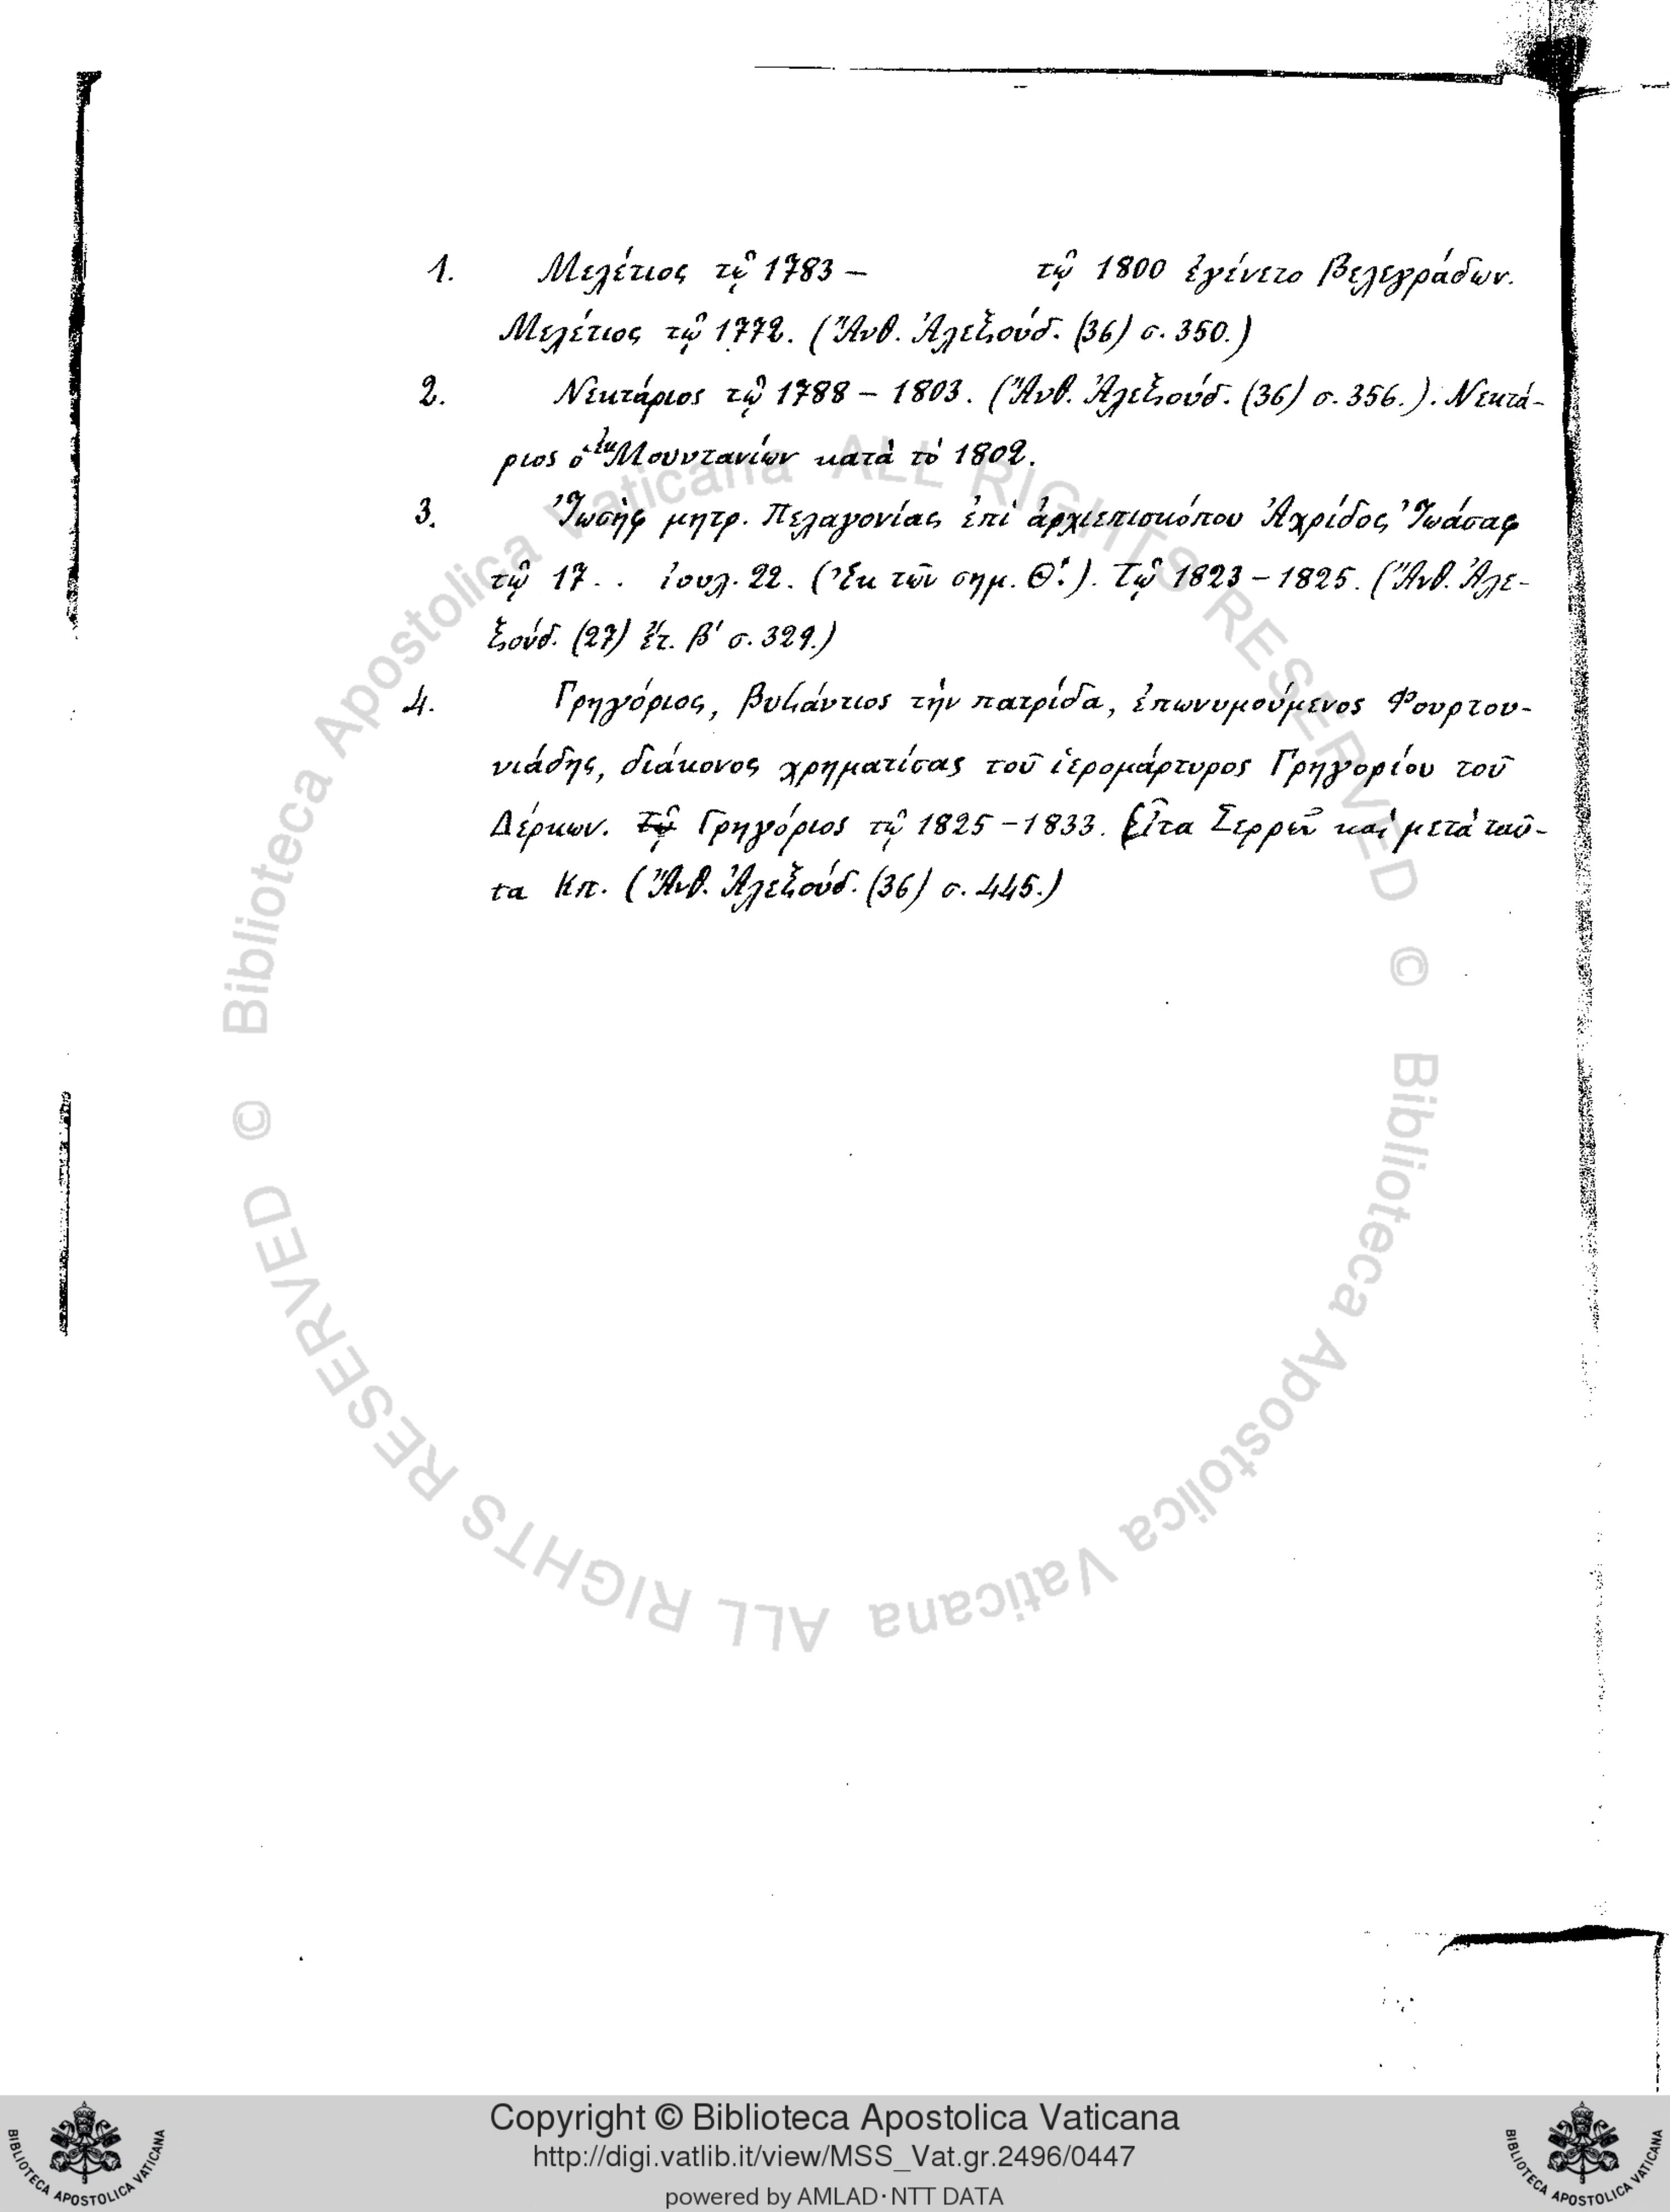 1. Μελέτιος τῷ 1783 – τῷ 1800 ἐγένετο Βελεγράδων.
Μελέτιος τῷ 1772. (Ἄνθ. Ἀλεξούδ. (36) σ. 350.)
2. Νεκτάριος τῷ 1788 – 1803. (Ἄνθ. Ἀλεξούδ. (36) σ. 356.). Νεκτά-
ριος ὁ ἐκ Μουντανίων κατὰ τὸ 1802.
3. Ἰωσὴφ μητρ. Πελαγονίας ἐπὶ ἀρχιεπισκόπου Ἀχρίδος Ἰωάσαφ
τῷ 17. . ἰουλ. 22. (Ἐκ τῶν σημ. Θ.). Τῷ 1823 – 1825. (Ἄνθ. Ἀλε-
ξούδ. (27) ἔτ. β' σ. 329.)
4. Γρηγόριος, βυζάντιος τὴν πατρίδα, ἐπωνυμούμενος Φουρτου-
νιάδης, διάκονος χρηματίσας τοῦ ἱερομάρτυρος Γρηγορίου τοῦ
Δέρκων. Τῷ Γρηγόριος τῷ 1825 – 1833. Εἶτα Σερρῶν καὶ μετὰ ταῦ-
τα Κπ. (Ἄνθ. Ἀλεξούδ. (36) σ. 445.)
© Biblioteca Apostolica Vaticana ALL RIGHTS RESERVED
© Biblioteca Apostolica Vaticana ALL RIGHTS RESERVED
Copyright © Biblioteca Apostolica Vaticana
http://digi.vatlib.it/view/MSS_Vat.gr.2496/0447
powered by AMLAD·NTT DATA
BIBLIOTECA APOSTOLICA VATICANA
BIBLIOTECA APOSTOLICA VATICANA